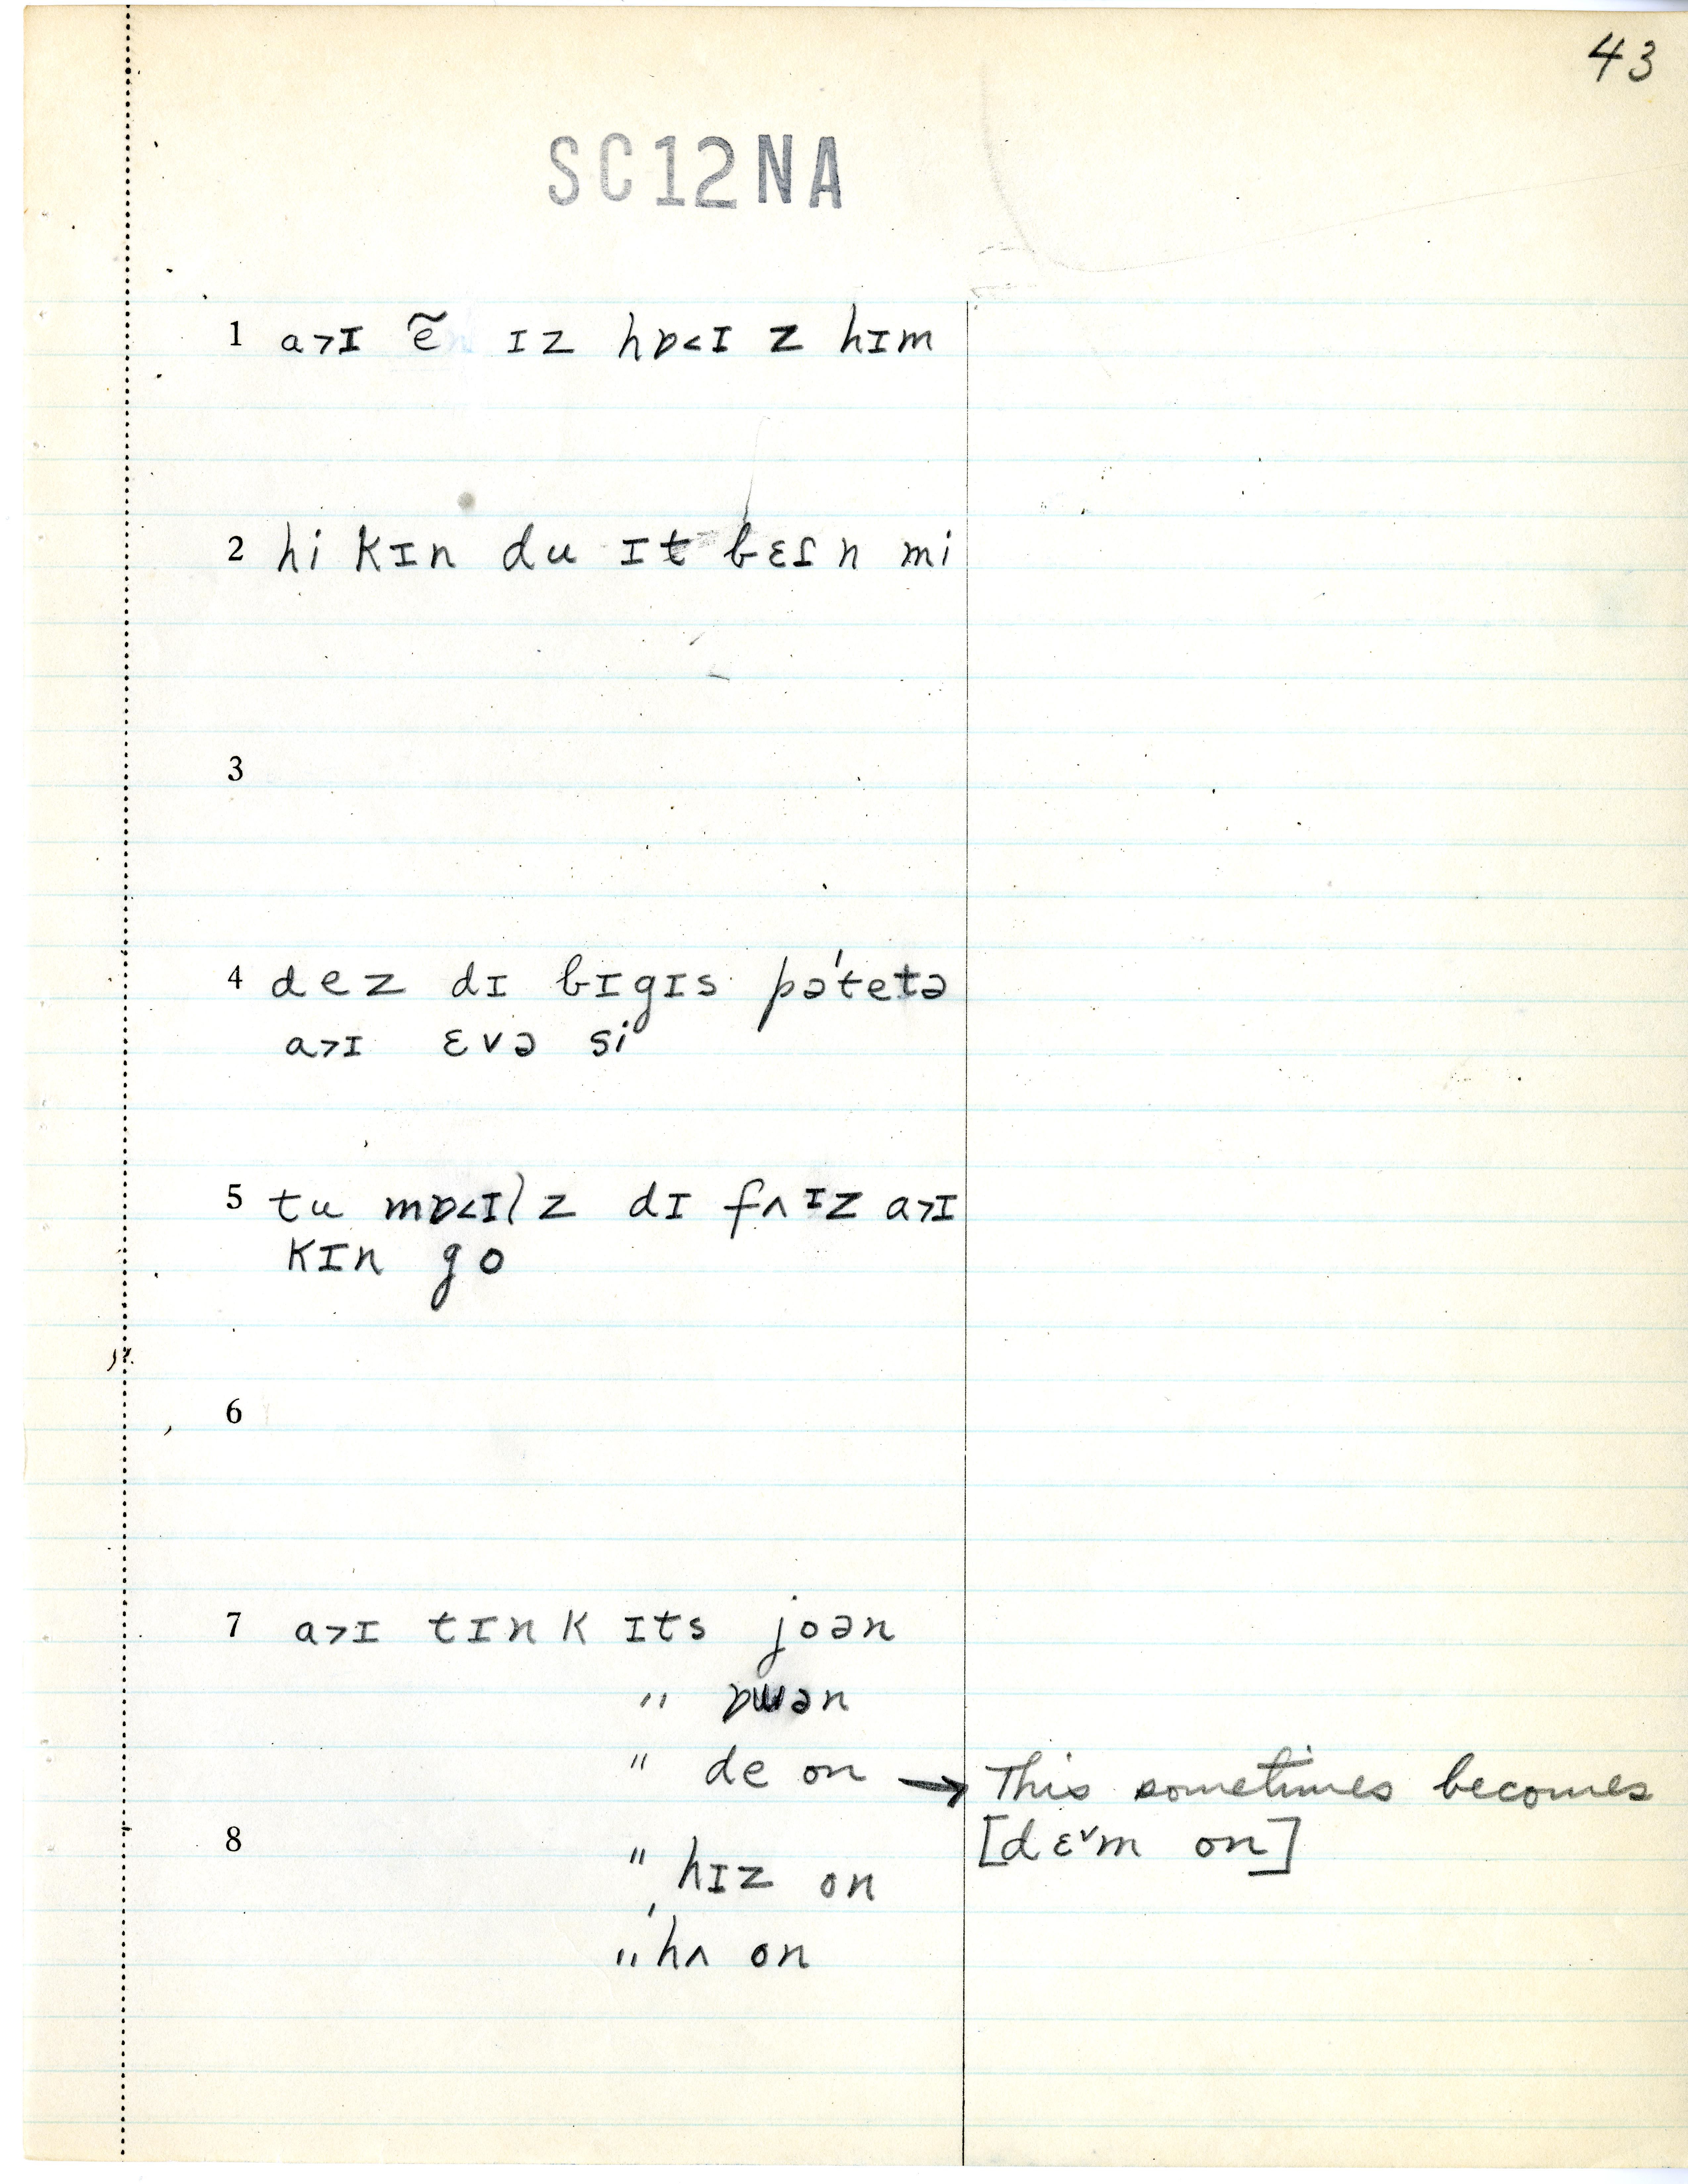 43
SC12NA
1 a>ɪ ẽ ɪz hɒ<ɪ z hɪm
2 hi kɪn du ɪt bɛɾn mi
3
4 dez dɪ bɪgɪs pə'tetə
a>ɪ ɛvə si
5 tu mɒ<ɪlz dɪ fʌɪz a>ɪ
kɪn go
6
7 a>ɪ tɪnk ɪts joən
" ɒwən
" de on → This sometimes becomes
[dɛ˅m on]
8 " hɪz on
" hʌ on